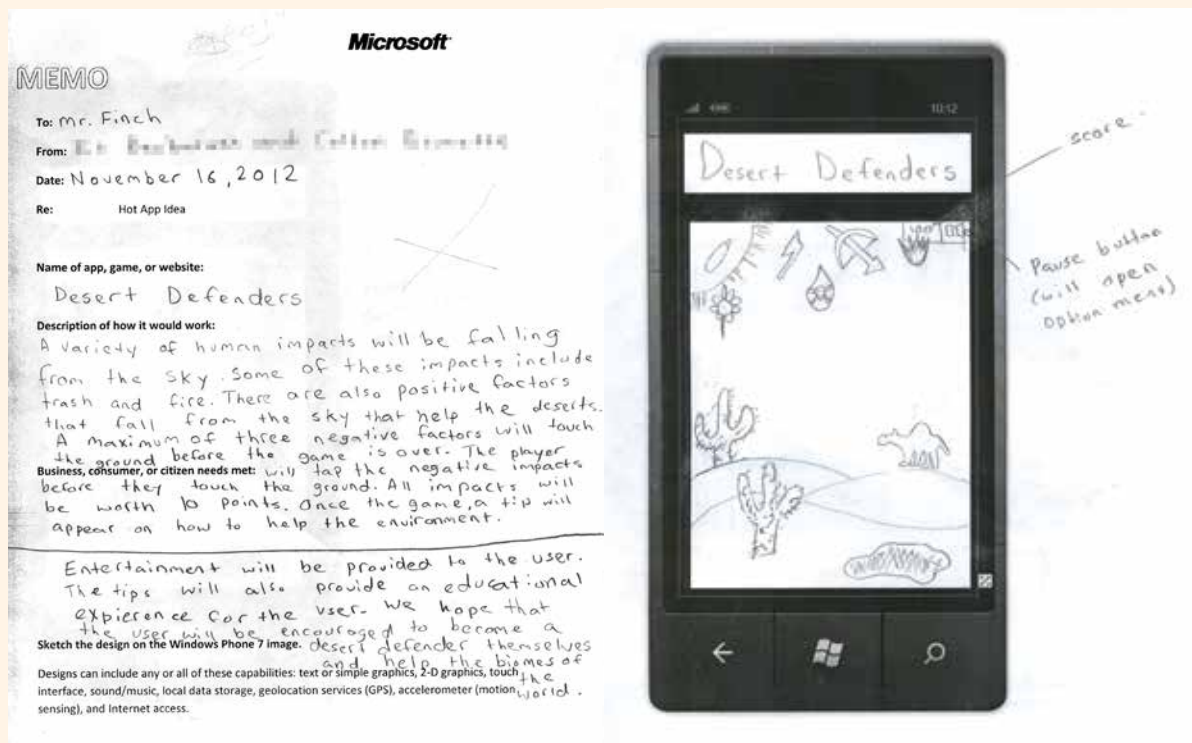 Microsoft
MEMO
To: Mr. Finch
From:
Date: November 16, 2012
Re: Hot App Idea
Name of app, game, or website:
Desert Defenders
Description of how it would work:
A variety of human impacts will be falling
from the sky. Some of these impacts include
trash and fire. There are also positive factors
that fall from the sky that help the deserts.
A maximum of three negative factors will touch
the ground before the game is over. The player
Business, consumer, or citizen needs met: will tap the negative impacts
before they touch the ground. All impacts will
be worth 10 points. Once the game, a tip will
appear on how to help the environment.
Entertainment will be provided to the user.
The tips will also provide an educational
expierence for the user. We hope that
the user will be encouraged to become a
Sketch the design on the Windows Phone 7 image. desert defender themselves
and help the biomes of
Designs can include any or all of these capabilities: text or simple graphics, 2-D graphics, touch the
interface, sound/music, local data storage, geolocation services (GPS), accelerometer (motion world.
sensing), and Internet access.
10:12
Desert Defenders
score
Pause button
(will open
option menu)